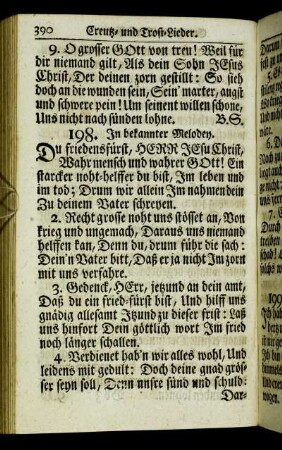 390 Creutz- und Trost-Lieder.
9. O grosser GOtt von treu! Weil für
dir niemand gilt, Als dein Sohn JEsus
Christ, Der deinen zorn gestillt: So sieh
doch an die wunden sein, Sein' marter, angst
und schwere pein! Um seinent willen schone,
Uns nicht nach sünden lohne. B.S.
198. In bekannter Melodey.
Du friedensfürst, HERR JEsu Christ,
Wahr mensch und wahrer GOtt! Ein
starcker noht-helffer du bist, Im leben und
im tod; Drum wir allein Im nahmen dein
Zu deinem Vater schreyen.
2. Recht grosse noht uns stösset an, Von
krieg und ungemach, Daraus uns niemand
helffen kan, Denn du, drum führ die sach:
Dein'n Vater bitt, Daß er ja nicht Im zorn
mit uns verfahre.
3. Gedenck, HErr, jetzund an dein amt,
Daß du ein fried-fürst bist, Und hilff uns
gnädig allesamt Jtzund zu dieser frist: Laß
uns hinfort Dein göttlich wort Im fried
noch länger schallen.
4. Verdienet hab'n wir alles wohl, Und
leidens mit gedult: Doch deine gnad grös-
ser seyn soll, Denn unsre sünd und schuld:
Dar-